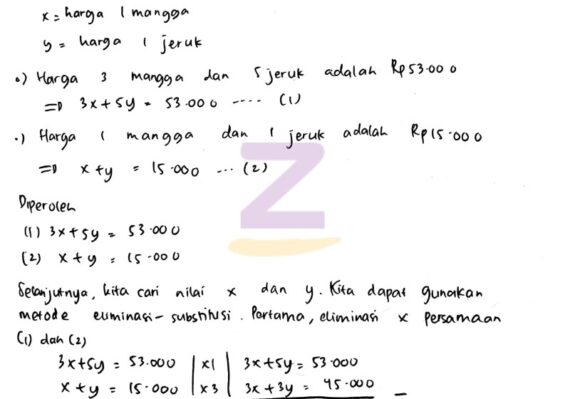 x = harga 1 mangga
y = harga 1 jeruk
•) Harga 3 mangga dan 5 jeruk adalah Rp53.000
⇒ 3x + 5y = 53.000 .... (1)
•) Harga 1 mangga dan 1 jeruk adalah Rp15.000
⇒ x + y = 15.000 ... (2)
Diperoleh
(1) 3x + 5y = 53.000
(2) x + y = 15.000
Selanjutnya, kita cari nilai x dan y. Kita dapat gunakan
metode eliminasi - substitusi. Pertama, eliminasi x persamaan
(1) dan (2)
3x + 5y = 53.000 | x1 | 3x + 5y = 53.000
x + y = 15.000 | x3 | 3x + 3y = 45.000 -